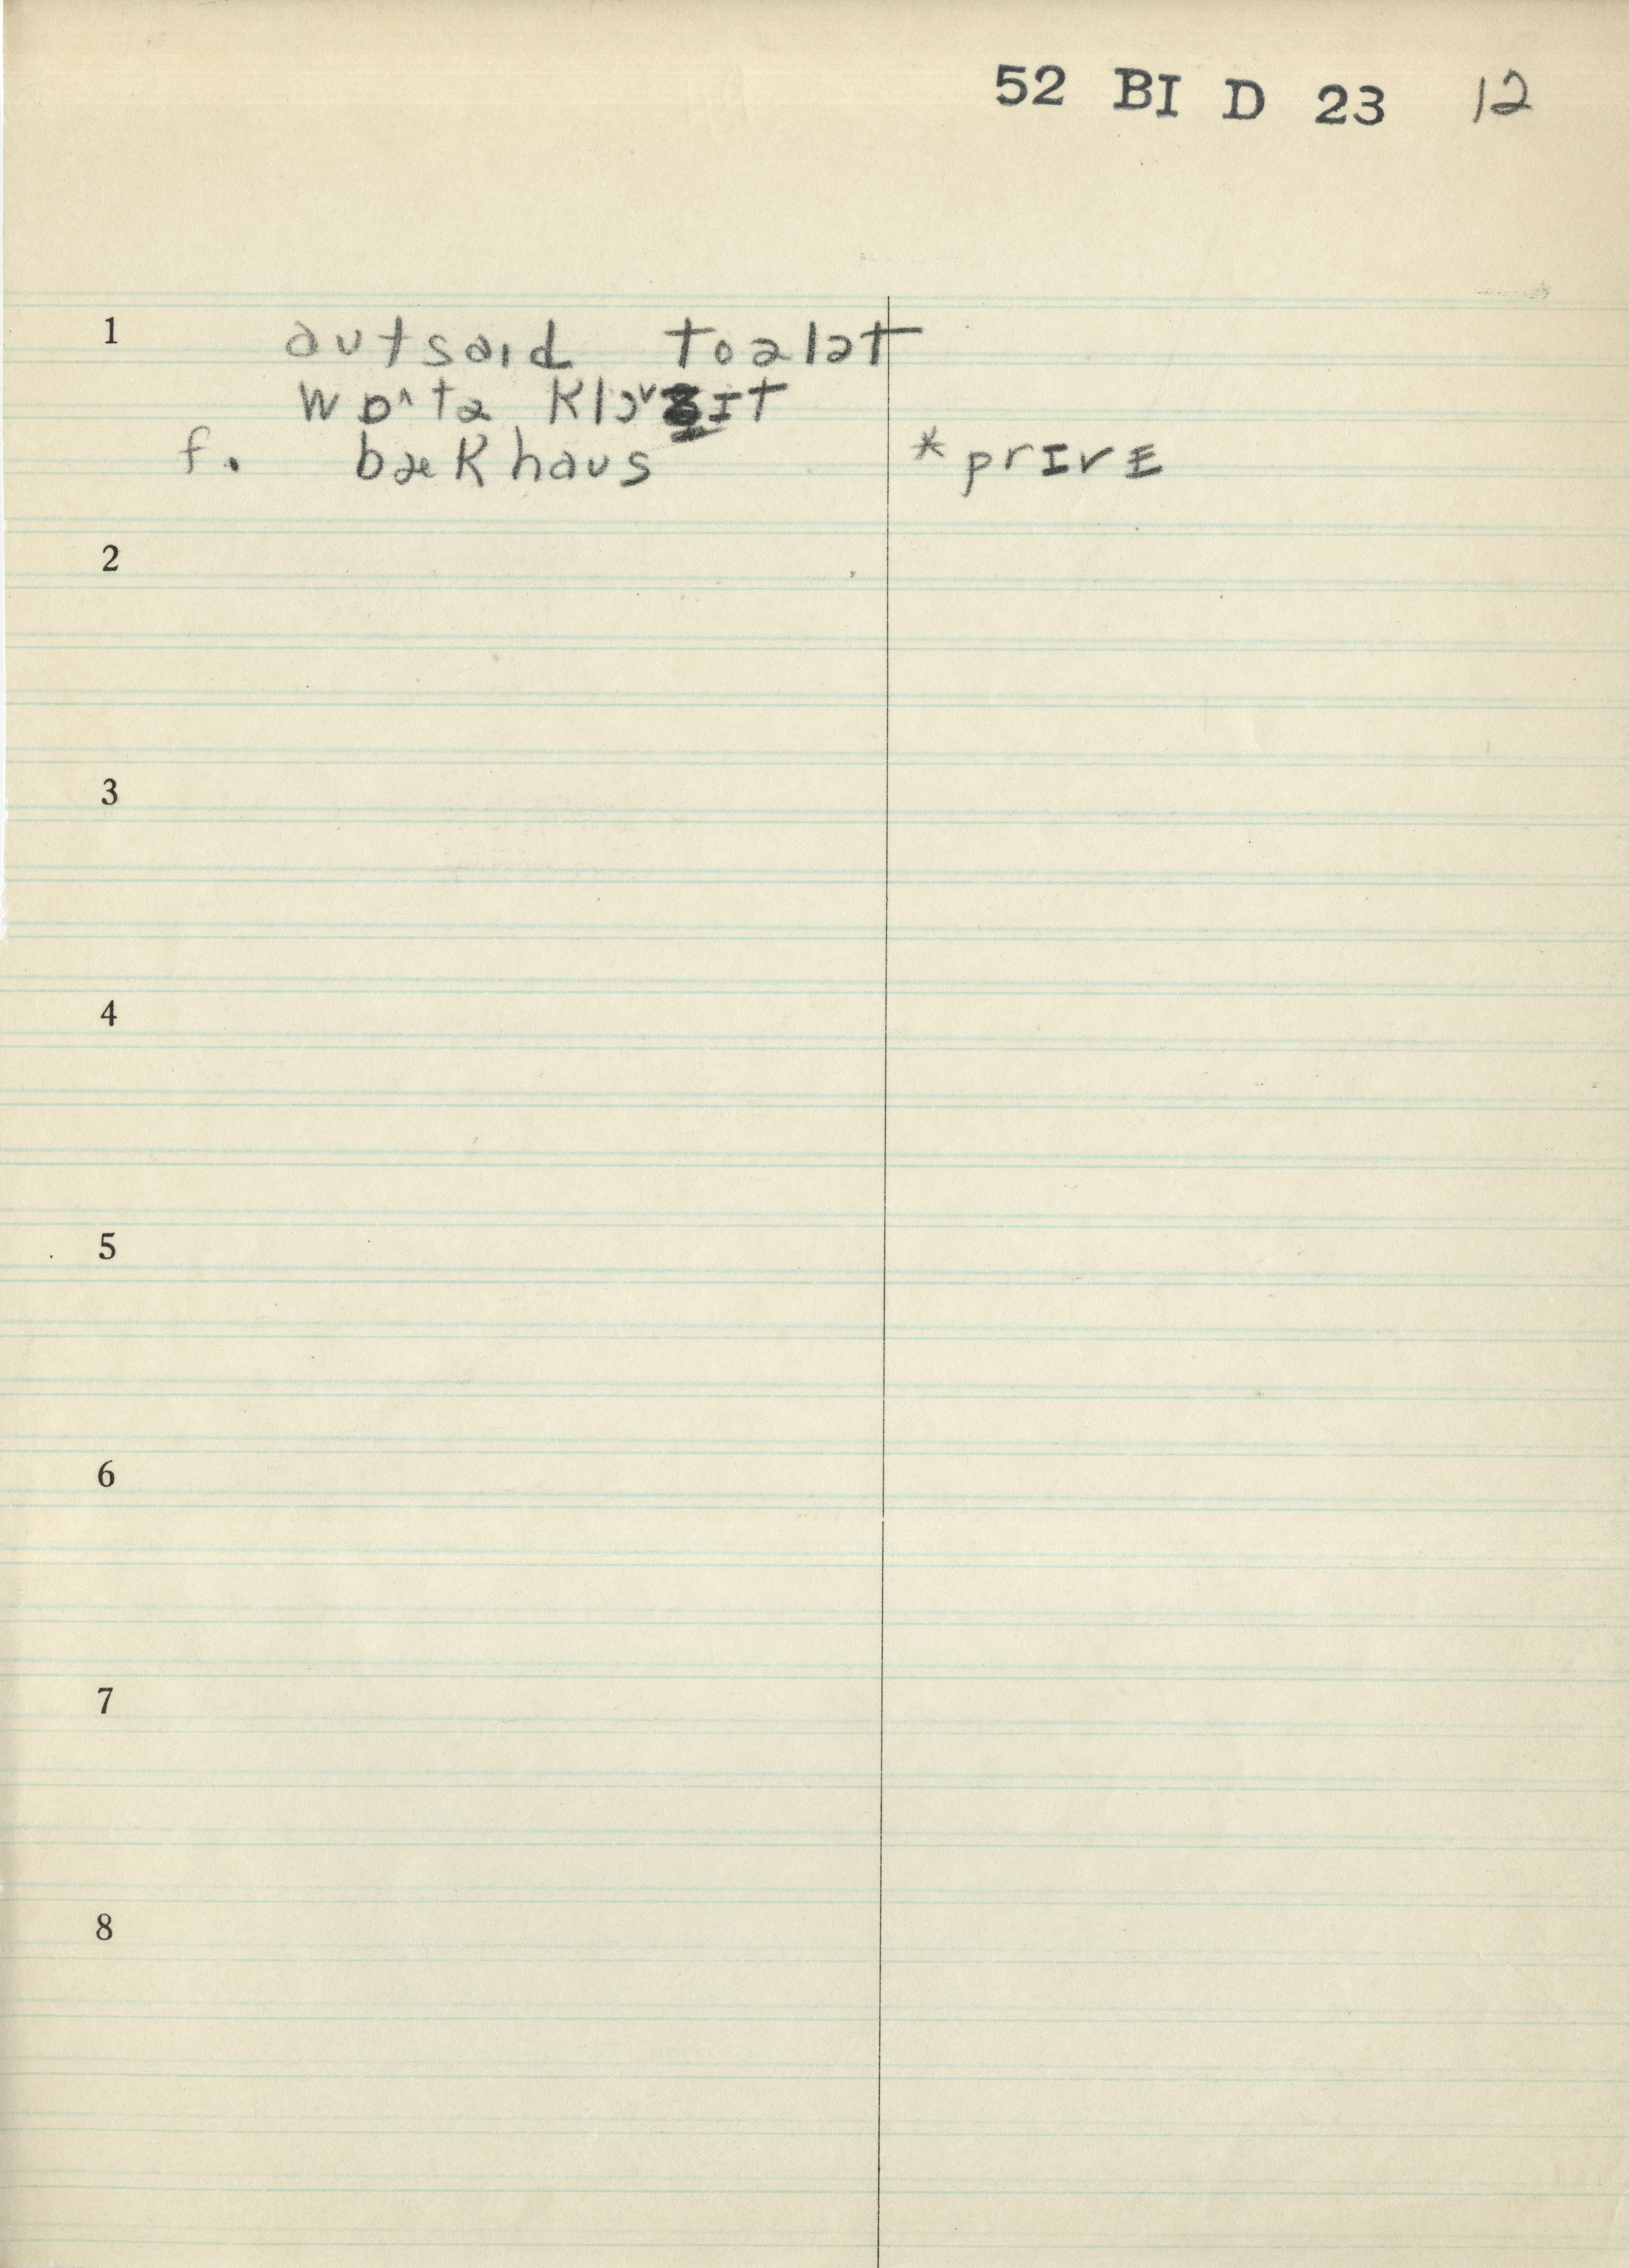 52 BI D 23 12
1 autsaıd toələt
wɒ^tə klɔvzɪt
f. bækhaus *prɪvɛ
2
3
4
5
6
7
8